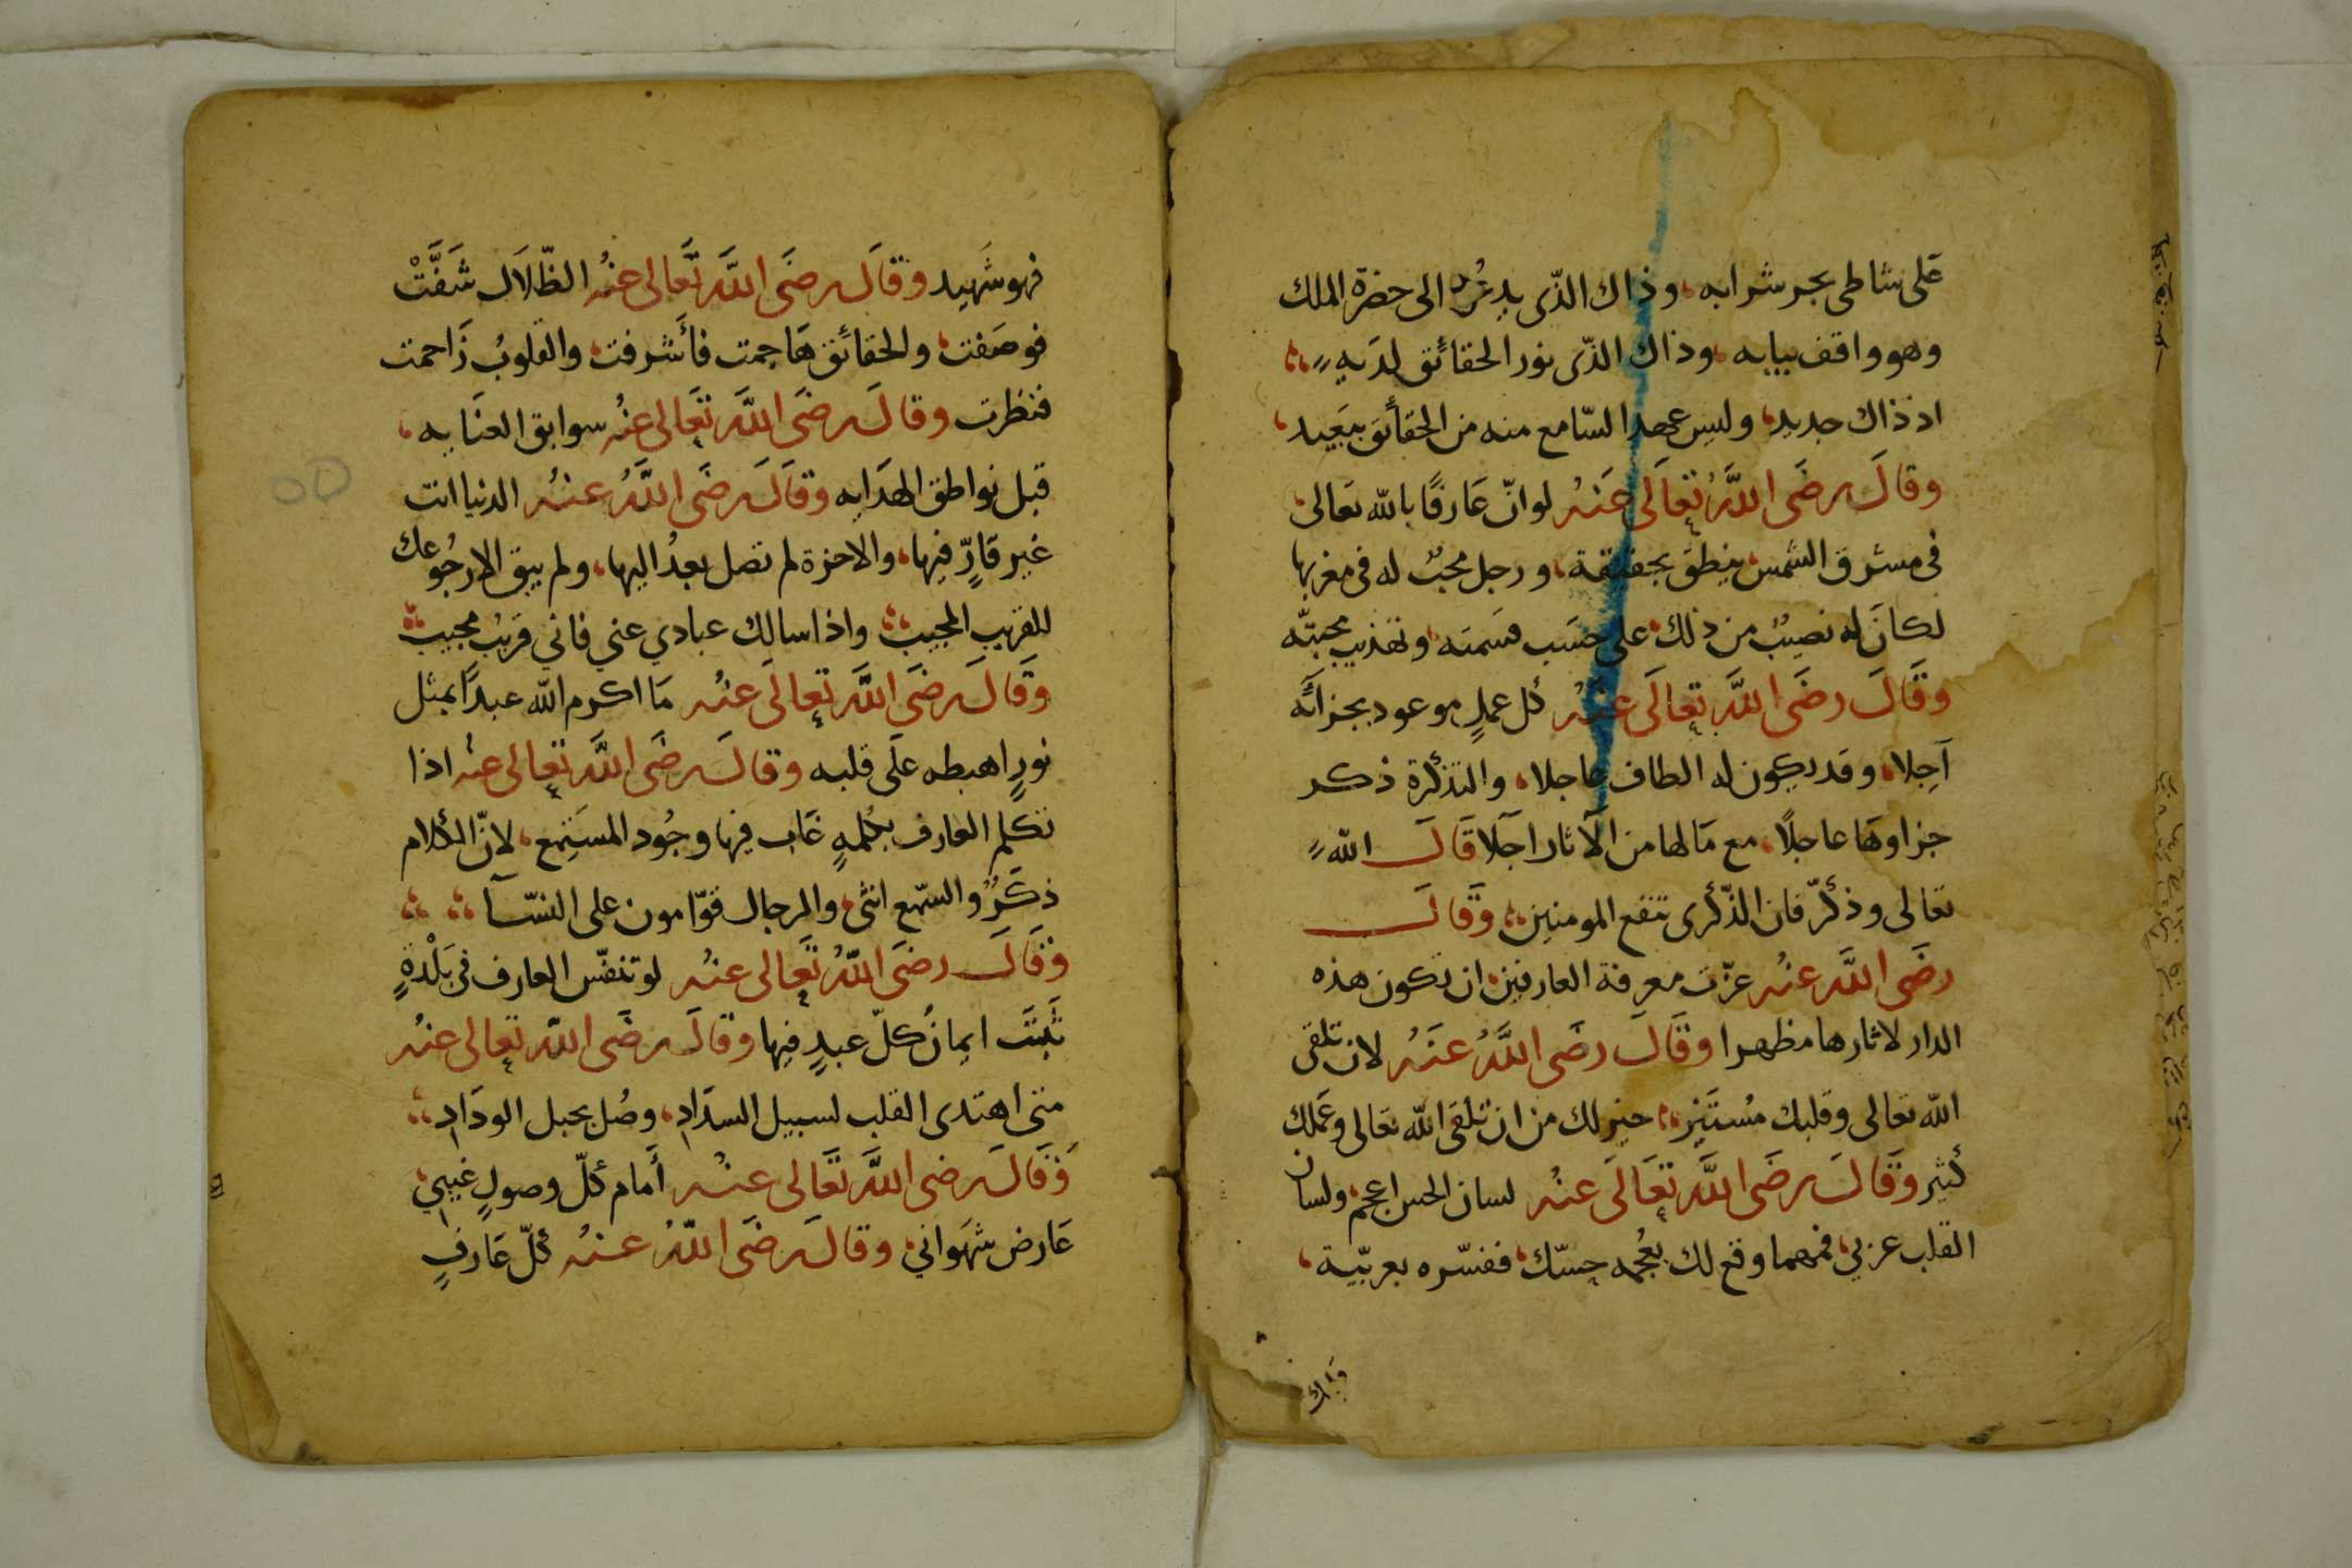 على شاطى بحر شرابه، وذاك الذّى يدعُوه الى حضرة الملك
وهو واقف ببابه، وذاك الذّى نور الحقائق لدَيهِ
اذ ذاك جديد، وليس عهد السّامع منه من الحقائق ببَعيد،
وقالَ رضَى اللَّهُ تعالَى عَنهُ لو انّ عَارفًا بالله تعَالى
فى مشرق الشمس ينطق بحقيقة، ورجل محبٌ له فى مغربها
لكانَ له نصيبٌ من ذلك على حسَب قسَمته، وتهذيب محبتّه
وقَالَ رضَى اللَّه تعالَى عنهُ كل عملٍ موعود بجزائه
آجلا، وقد يكون له الطاف عاجلا، والتذكرة ذكر
جزاوهَا عاجلًا، مع مَا لها من الآثار اجَلا قَالَ الله
تعالى وذكرّ فان الذّكرى تنفع المومنين، وقَالَ
رضَى اللَّه عنهُ عزّت معرفة العارفين ان تكون هذه
الدار لاثارها مظهرا وقَالَ رضَى اللَّهُ عنَهُ لان تلقى
الله تعالى وقلبك مُستَنير، خير لك من ان تلقَى الله تعَالى وعَملك
كثير وقَالَ رضَى اللَّه تعَالَى عنهُ لسان الحس اعجم، ولسان
القلب عزبي، فمهما وقع لك بعُجمه حِسّك، ففسّره بعربيّة،
فهو شَهيد وقالَ رضَى اللَّه تعَالى عنهُ الظّلاَل شَفَّتْ
فوصَفت، والحقائق هَاجمت فأَشرفت، والقلوبُ زَاحمت
فنظرت وقالَ رضَى اللَّه تعَالى عنهُ سوابق العنَايه،
قبل نواطق الهدَايه وقَالَ رضَى اللَّهُ عنهُ الدنيا انت
غير قَارٍّ فيها، والاخرة لم تصل بعدُ اليها، ولم يبق الا رجُوعك
للقريب المجيب، واذا سالك عبادي عني فاني قريبٌ مجيب
وقَالَ رضَى اللَّه تعالَى عنهُ مَا اكرم الله عبدًا بمثل
نورٍ اهبطه علَى قلبه وقالَ رضَى اللَّه تعالى عنهُ اذا
تكلم العارف بكلمهٍ غَاب فيها وجُود المستَمِع، لانّ الكلام
ذكَرٌ والسّمع انثى، والرجال قوّامون على النسّآ
وقَالَ رضَى اللّهُ تعَالى عنهُ لو تنفّس العارف فى بَلْدةٍ
ثَبتَت ايمانُ كلّ عبدٍ فيها وقالَ رضَى اللّه تعالى عنهُ
متى اهتدى القلب لسبيل السدَادِ، وصُل بحبل الودَادِ
وقَالَ رضى اللَّه تعَالى عنهُ أَمام كلّ وصولٍ غيبيٍ
عَارض شهَواني، وقالَ رضَى اللّهُ عنهُ كلّ عَارفٍ